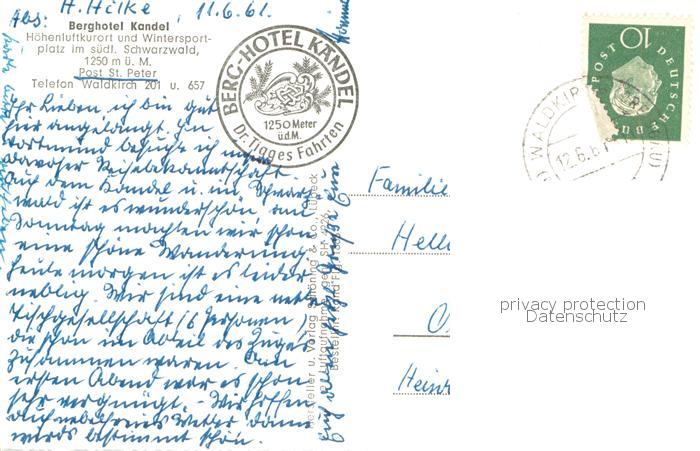 Abs: H. Hilke, 11.6.61.
Berghotel Kandel
Höhenluftkurort und Wintersport-
platz im südl. Schwarzwald,
1250 m ü. M.
Post St. Peter
Telefon Waldkirch 201 u. 657
BERG-HOTEL KANDEL
1250 Meter
ü.d.M.
Dr. Tigges Fahrten
Ihr Lieben ich bin gut
hier angelangt. In
Dortmund besuchte ich
Davoser Reisebekanntschaft.
Auf dem Kandel u. im Schwarz
wald ist es wunderschön. Am
Sonntag machten wir schon
eine schöne Wanderung.
Heute morgen ist es leider
neblig. Wir sind eine nette
Tischgesellschaft (6 Personen)
die schon im Abteil des Zuges
zusammen waren. Am
ersten Abend war es schon
sehr vergnügt. - Wir hoffen
auf nebelfreies Wetter dann
wird's bestimmt schön.
Euch allen herzl. Grüße Eure
Hersteller u. Verlag Schöning & Co., Lübeck
Familie
Hein
10
DEUTSCHE BUNDESPOST
WALDKIRCH
12.6.61
privacy protection
Datenschutz